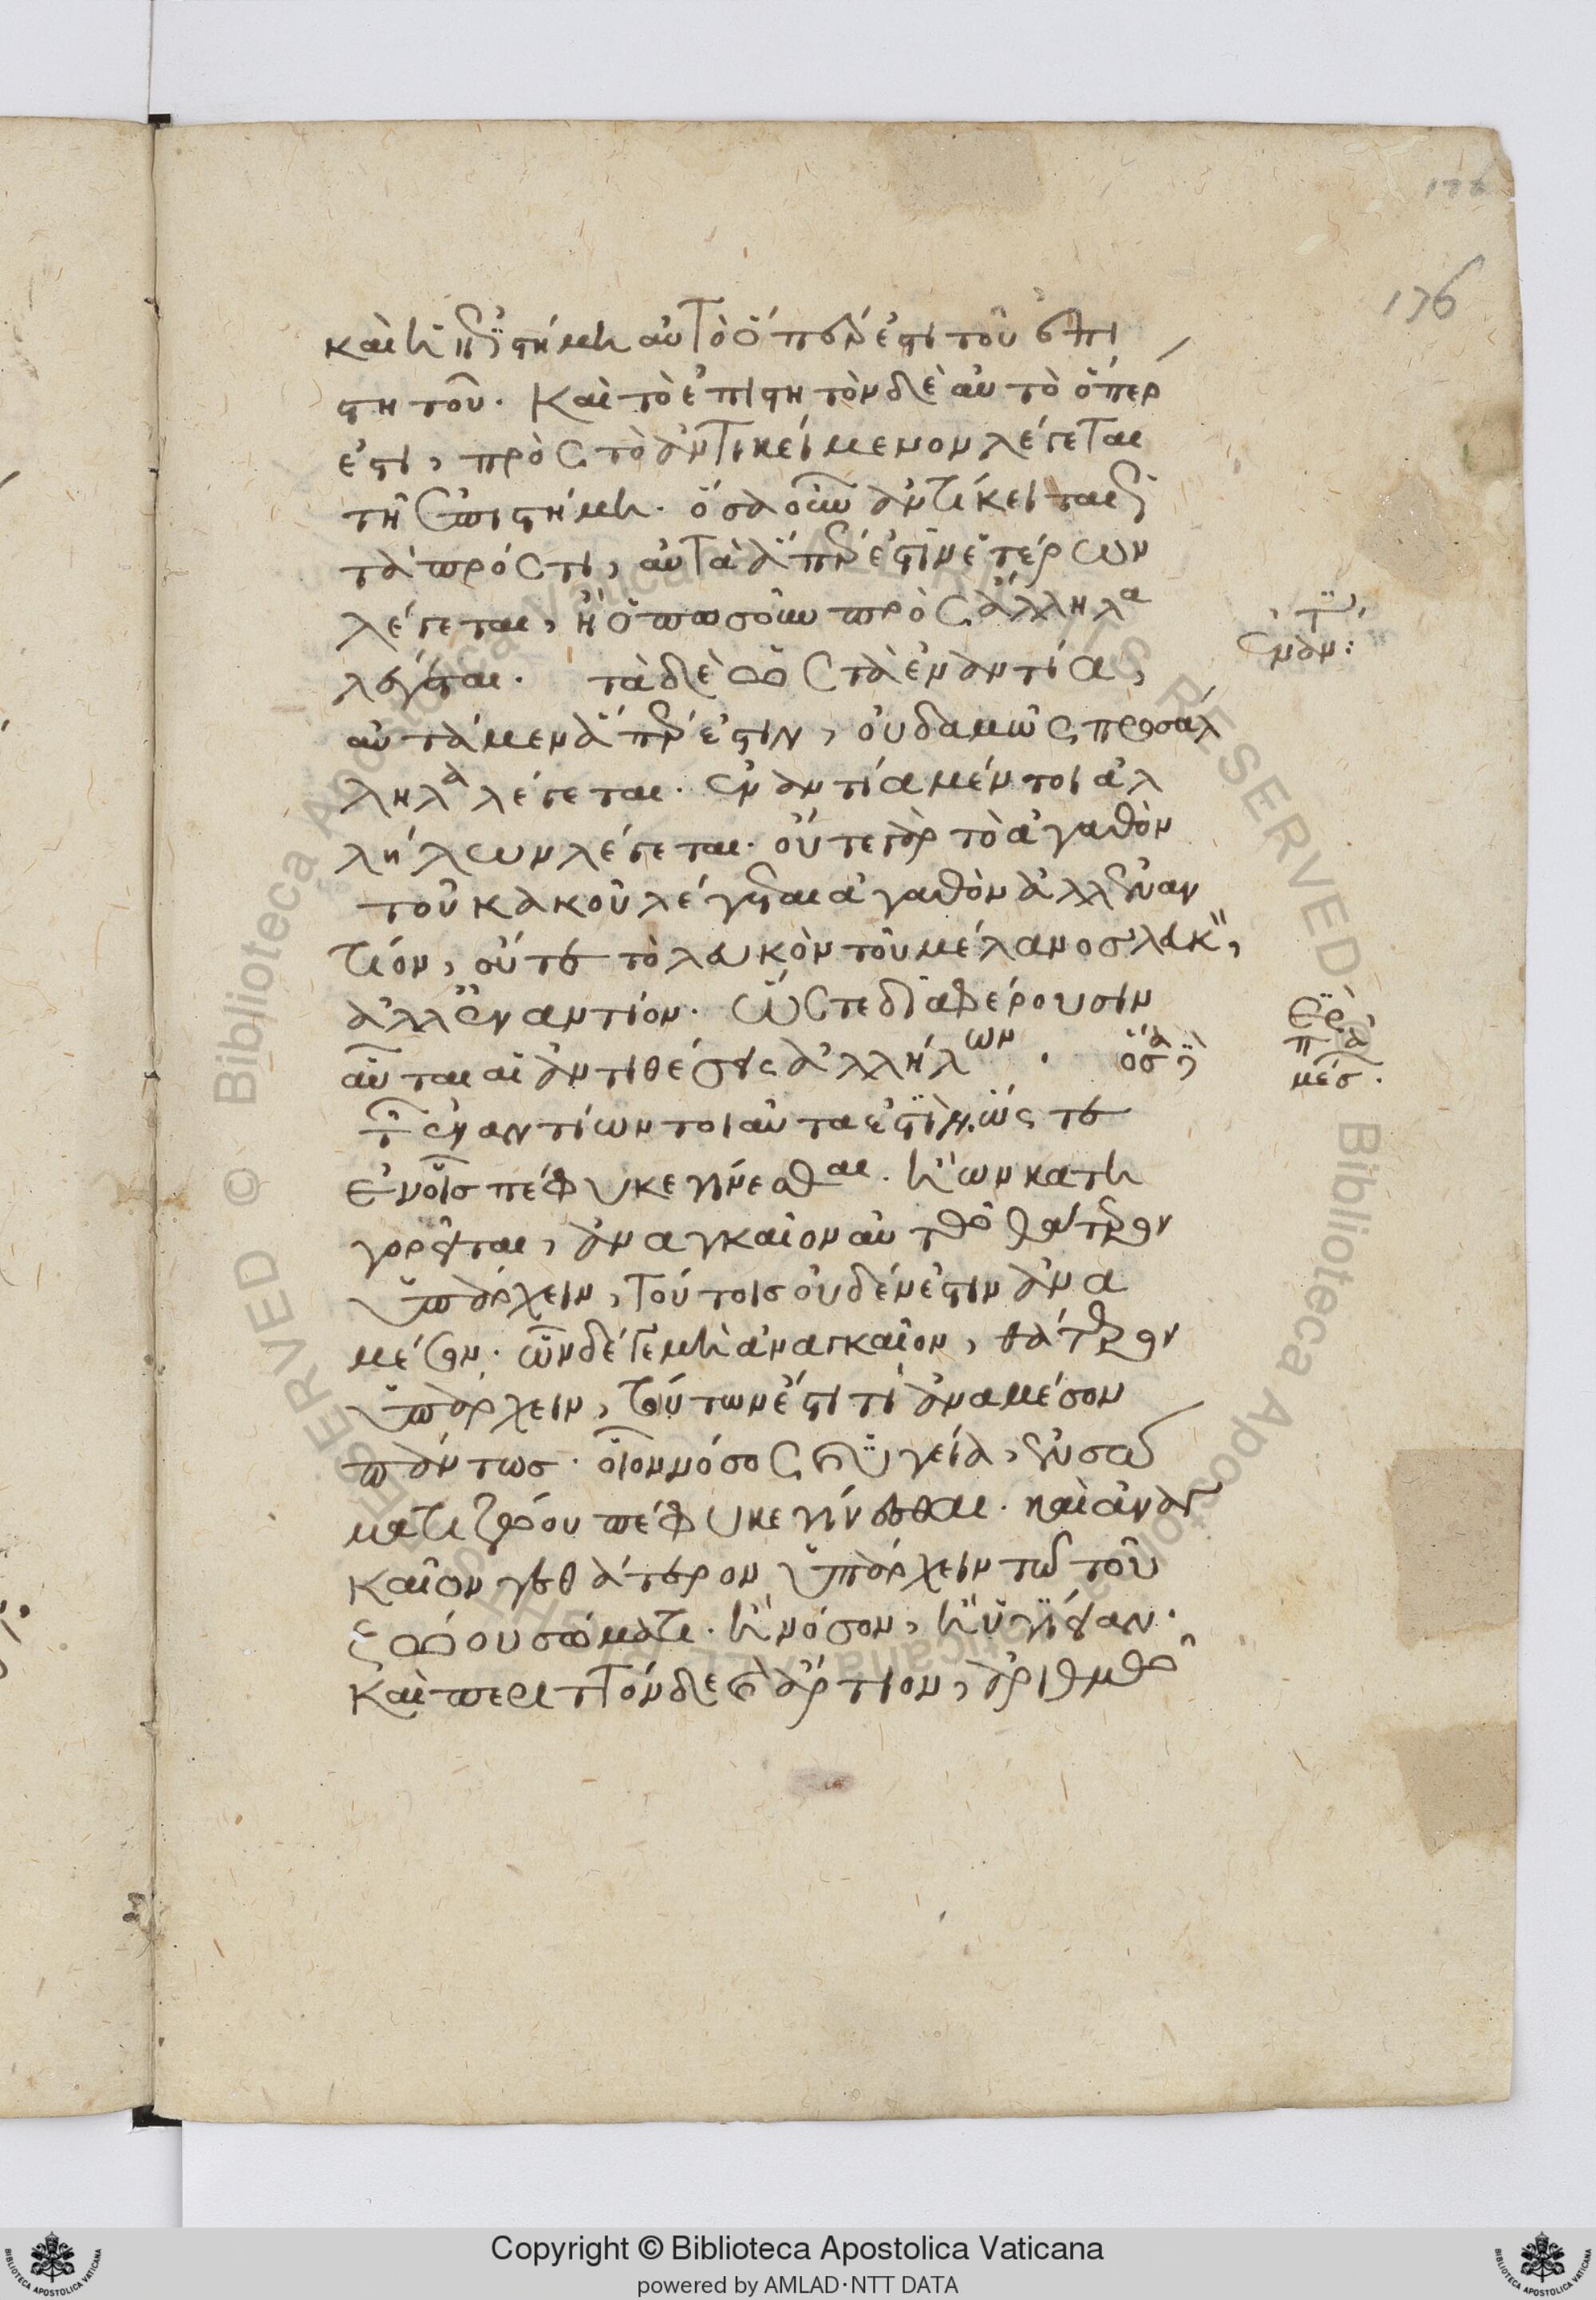 καὶ ἡ ἐπιστήμη αὐτὸ ὅπερ ἐστὶ τοῦ ἐπι
στητοῦ. Καὶ τὸ ἐπιστητὸν δὲ αὐτὸ ὅπερ
ἐστι, πρὸς τὸ ἀντικείμενον λέγεται
τῆ ἐπιστήμη. ὅσα οὖν ἀντίκειται ὡς
τὰ πρός τι, αὐτὰ ἅπερ ἐστὶν ἑτέρων
λέγεται, ἢ ὁπωσοῦν πρὸς ἄλληλα
λέγεται. τὰ δὲ ὡς τὰ ἐναντία,
αὐτὰ μὲν ἅπερ ἐστιν, οὐδαμῶς προσαλ
ληλα λέγεται. ἐναντία μέντοι ἀλ
λήλων λέγεται. οὔτε γὰρ τὸ ἀγαθὸν
τοῦ κακοῦ λέγεται ἀγαθὸν ἀλλ' ἐναν
τίον, οὔτε τὸ λευκὸν τοῦ μέλανος λευκ,
ἀλλ' ἐναντίον. ὥστε διαφέρουσιν
αὗται αἱ ἀντιθέσεις ἀλλήλων. ὅσα δὲ
τῶν ἐναντίων τοιαῦτα ἐστὶν, ὥς τε
ἐν οἷς πέφυκε γίνεσθαι. ἢ ὧν κατη
γορεῖται, ἀναγκαῖον αὐτῶν θάτερον
ὑπάρχειν, τούτοις οὐδέν ἐστιν ἀνα
μέσον. ὧν δέ γε μὴ ἀναγκαῖον, θάτερον
ὑπάρχειν, τούτων ἔστι τι ἀναμέσον
πάντως. οἷον νόσος καὶ ὑγεία, ἐν σώ
ματι ζώου πέφυκε γίνεσθαι. καὶ ἀναγ
καῖον γε θάτερον ὑπάρχειν τῶ τοῦ
ζώου σώματι. ἢ νόσον, ἢ ὑγίειαν.
Καὶ περιττὸν δὲ καὶ ἄρτιον, ἀριθμῶ
176
Copyright © Biblioteca Apostolica Vaticana
powered by AMLAD·NTT DATA